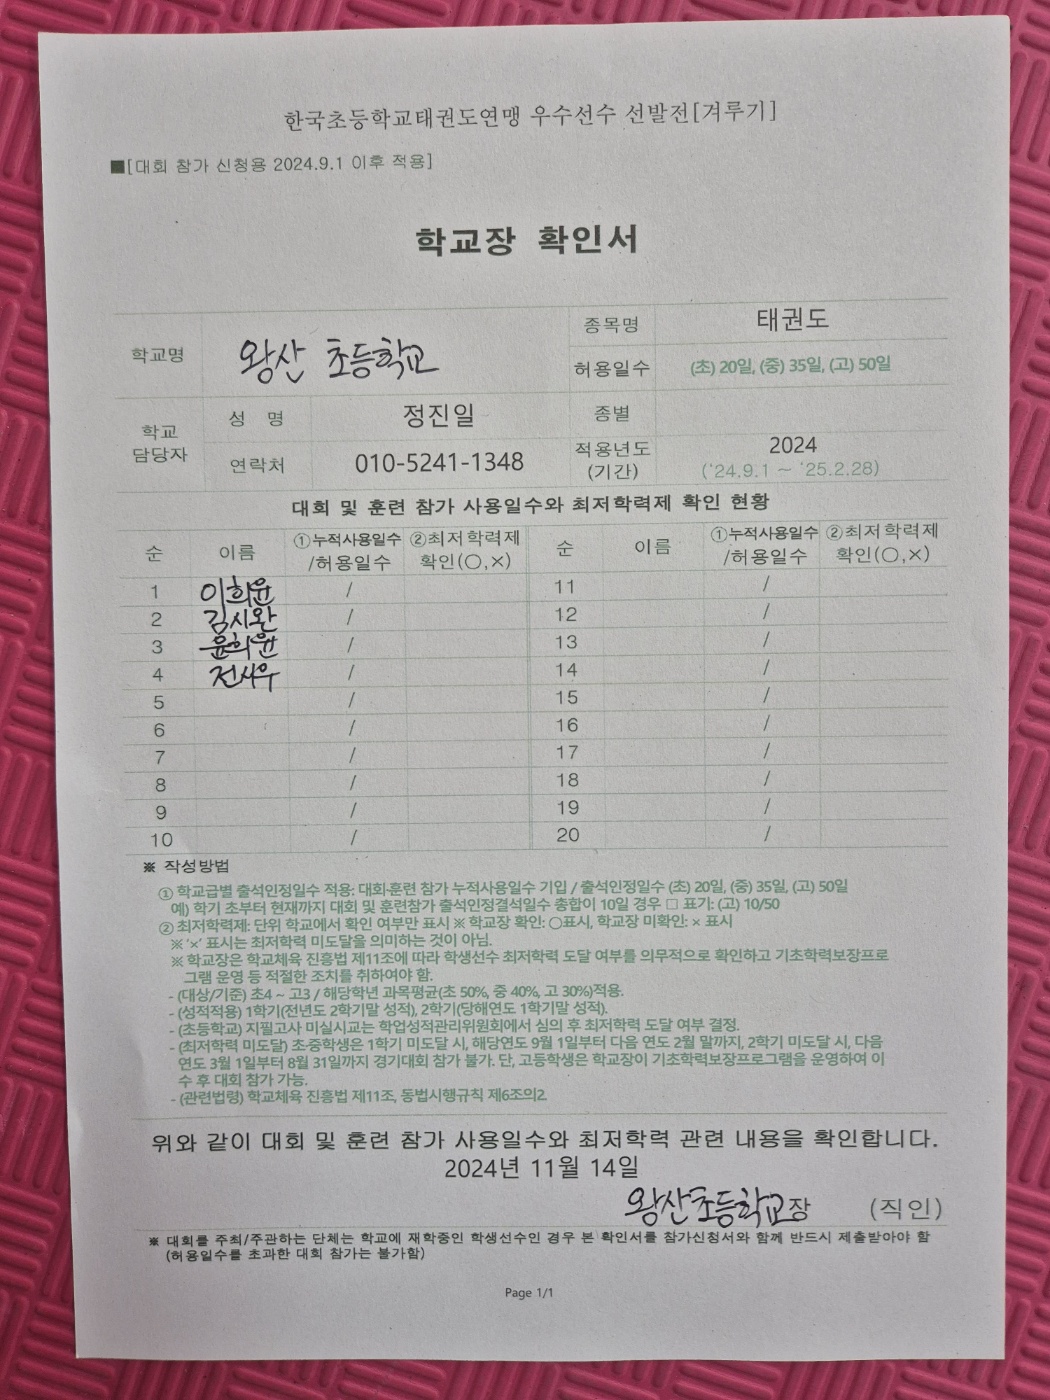 한국초등학교태권도연맹 우수선수 선발전[겨루기]
■[대회 참가 신청용 2024.9.1 이후 적용]
학교장 확인서
학교명 왕산 초등학교 종목명 태권도
허용일수 (초) 20일, (중) 35일, (고) 50일
학교 담당자 성 명 정진일 종별
연락처 010-5241-1348 적용년도 (기간) 2024 (‘24.9.1 ~ ’25.2.28)
대회 및 훈련 참가 사용일수와 최저학력제 확인 현황
순 이름 ①누적사용일수 /허용일수 ②최저학력제 확인(○,×) 순 이름 ①누적사용일수 /허용일수 ②최저학력제 확인(○,×)
1 이희윤 / 11 /
2 김시완 / 12 /
3 윤희윤 / 13 /
4 전시우 / 14 /
5 / 15 /
6 / 16 /
7 / 17 /
8 / 18 /
9 / 19 /
10 / 20 /
※ 작성방법
① 학교급별 출석인정일수 적용: 대회·훈련 참가 누적사용일수 기입 / 출석인정일수 (초) 20일, (중) 35일, (고) 50일
예) 학기 초부터 현재까지 대회 및 훈련참가 출석인정결석일수 총합이 10일 경우 □ 표기: (고) 10/50
② 최저학력제: 단위 학교에서 확인 여부만 표시 ※ 학교장 확인: ○표시, 학교장 미확인: × 표시
※ ‘×’ 표시는 최저학력 미도달을 의미하는 것이 아님.
※ 학교장은 학교체육 진흥법 제11조에 따라 학생선수 최저학력 도달 여부를 의무적으로 확인하고 기초학력보장프로
그램 운영 등 적절한 조치를 취하여야 함.
- (대상/기준) 초4 ~ 고3 / 해당학년 과목평균(초 50%, 중 40%, 고 30%)적용.
- (성적적용) 1학기(전년도 2학기말 성적), 2학기(당해연도 1학기말 성적).
- (초등학교) 지필고사 미실시교는 학업성적관리위원회에서 심의 후 최저학력 도달 여부 결정.
- (최저학력 미도달) 초·중학생은 1학기 미도달 시, 해당연도 9월 1일부터 다음 연도 2월 말까지, 2학기 미도달 시, 다음
연도 3월 1일부터 8월 31일까지 경기대회 참가 불가. 단, 고등학생은 학교장이 기초학력보장프로그램을 운영하여 이
수 후 대회 참가 가능.
- (관련법령) 학교체육 진흥법 제11조, 동법시행규칙 제6조의2.
위와 같이 대회 및 훈련 참가 사용일수와 최저학력 관련 내용을 확인합니다.
2024년 11월 14일
왕산초등학교장 (직인)
※ 대회를 주최/주관하는 단체는 학교에 재학중인 학생선수인 경우 본 확인서를 참가신청서와 함께 반드시 제출받아야 함
(허용일수를 초과한 대회 참가는 불가함)
Page 1/1